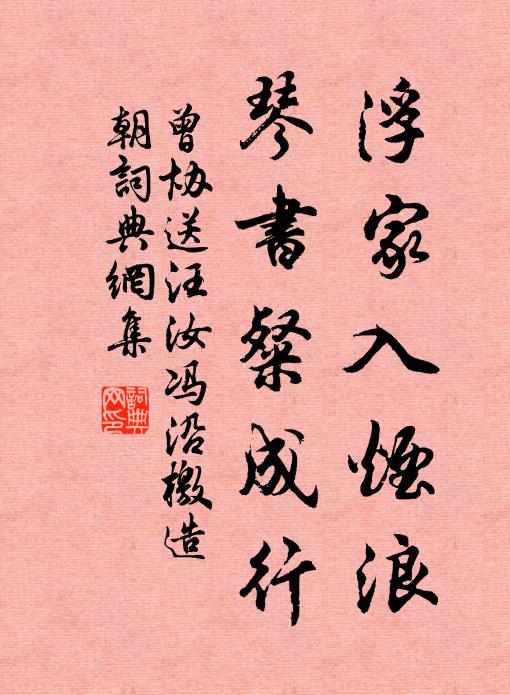 浮家入煙浪
琴書粲成行
曾协送汪汝冯沿檄造
朝詞典網集
詞典
网印